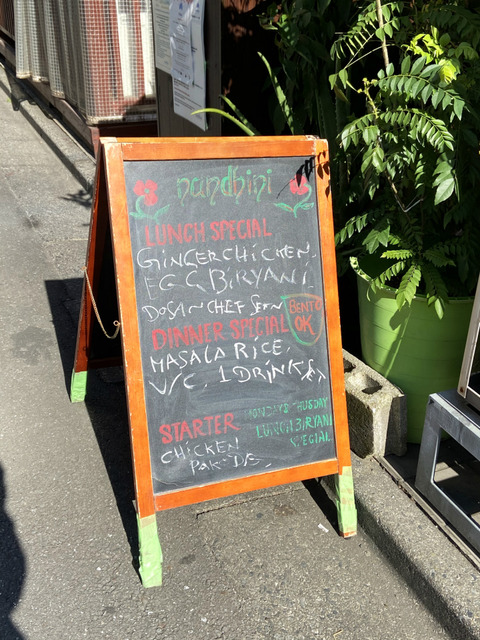 nandhini
LUNCH SPECIAL
GINGER CHICKEN.
EGG BIRYANI.
DOSA ~ CHEF
BENTO
OK
DINNER SPECIAL
MASALA RICE.
V/C. 1 DRINK
STARTER
CHICKEN
PAKODE.
MONDAYS THUSDAY
LUNCH BIRYANI
SPECIAL